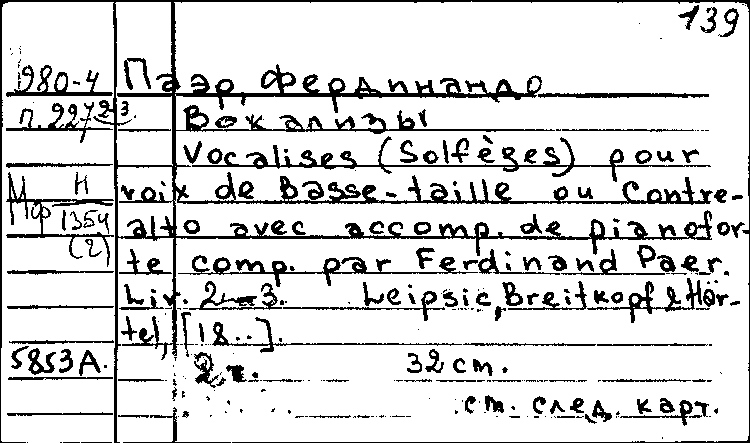 139
980-4 Паэр, Фердинандо
п.227 2-3 Вокализы
Vocalises (Solfèges) pour
Мор Н/1354 (2) voix de Basse-taille ou Contre-
alto avec accomp. de pianofor-
te comp. par Ferdinand Paer.
Liv. 2-3. Leipsic, Breitkopf & Här-
tel, [18..].
5853А. 2 т. 32 см.
см. след. карт.